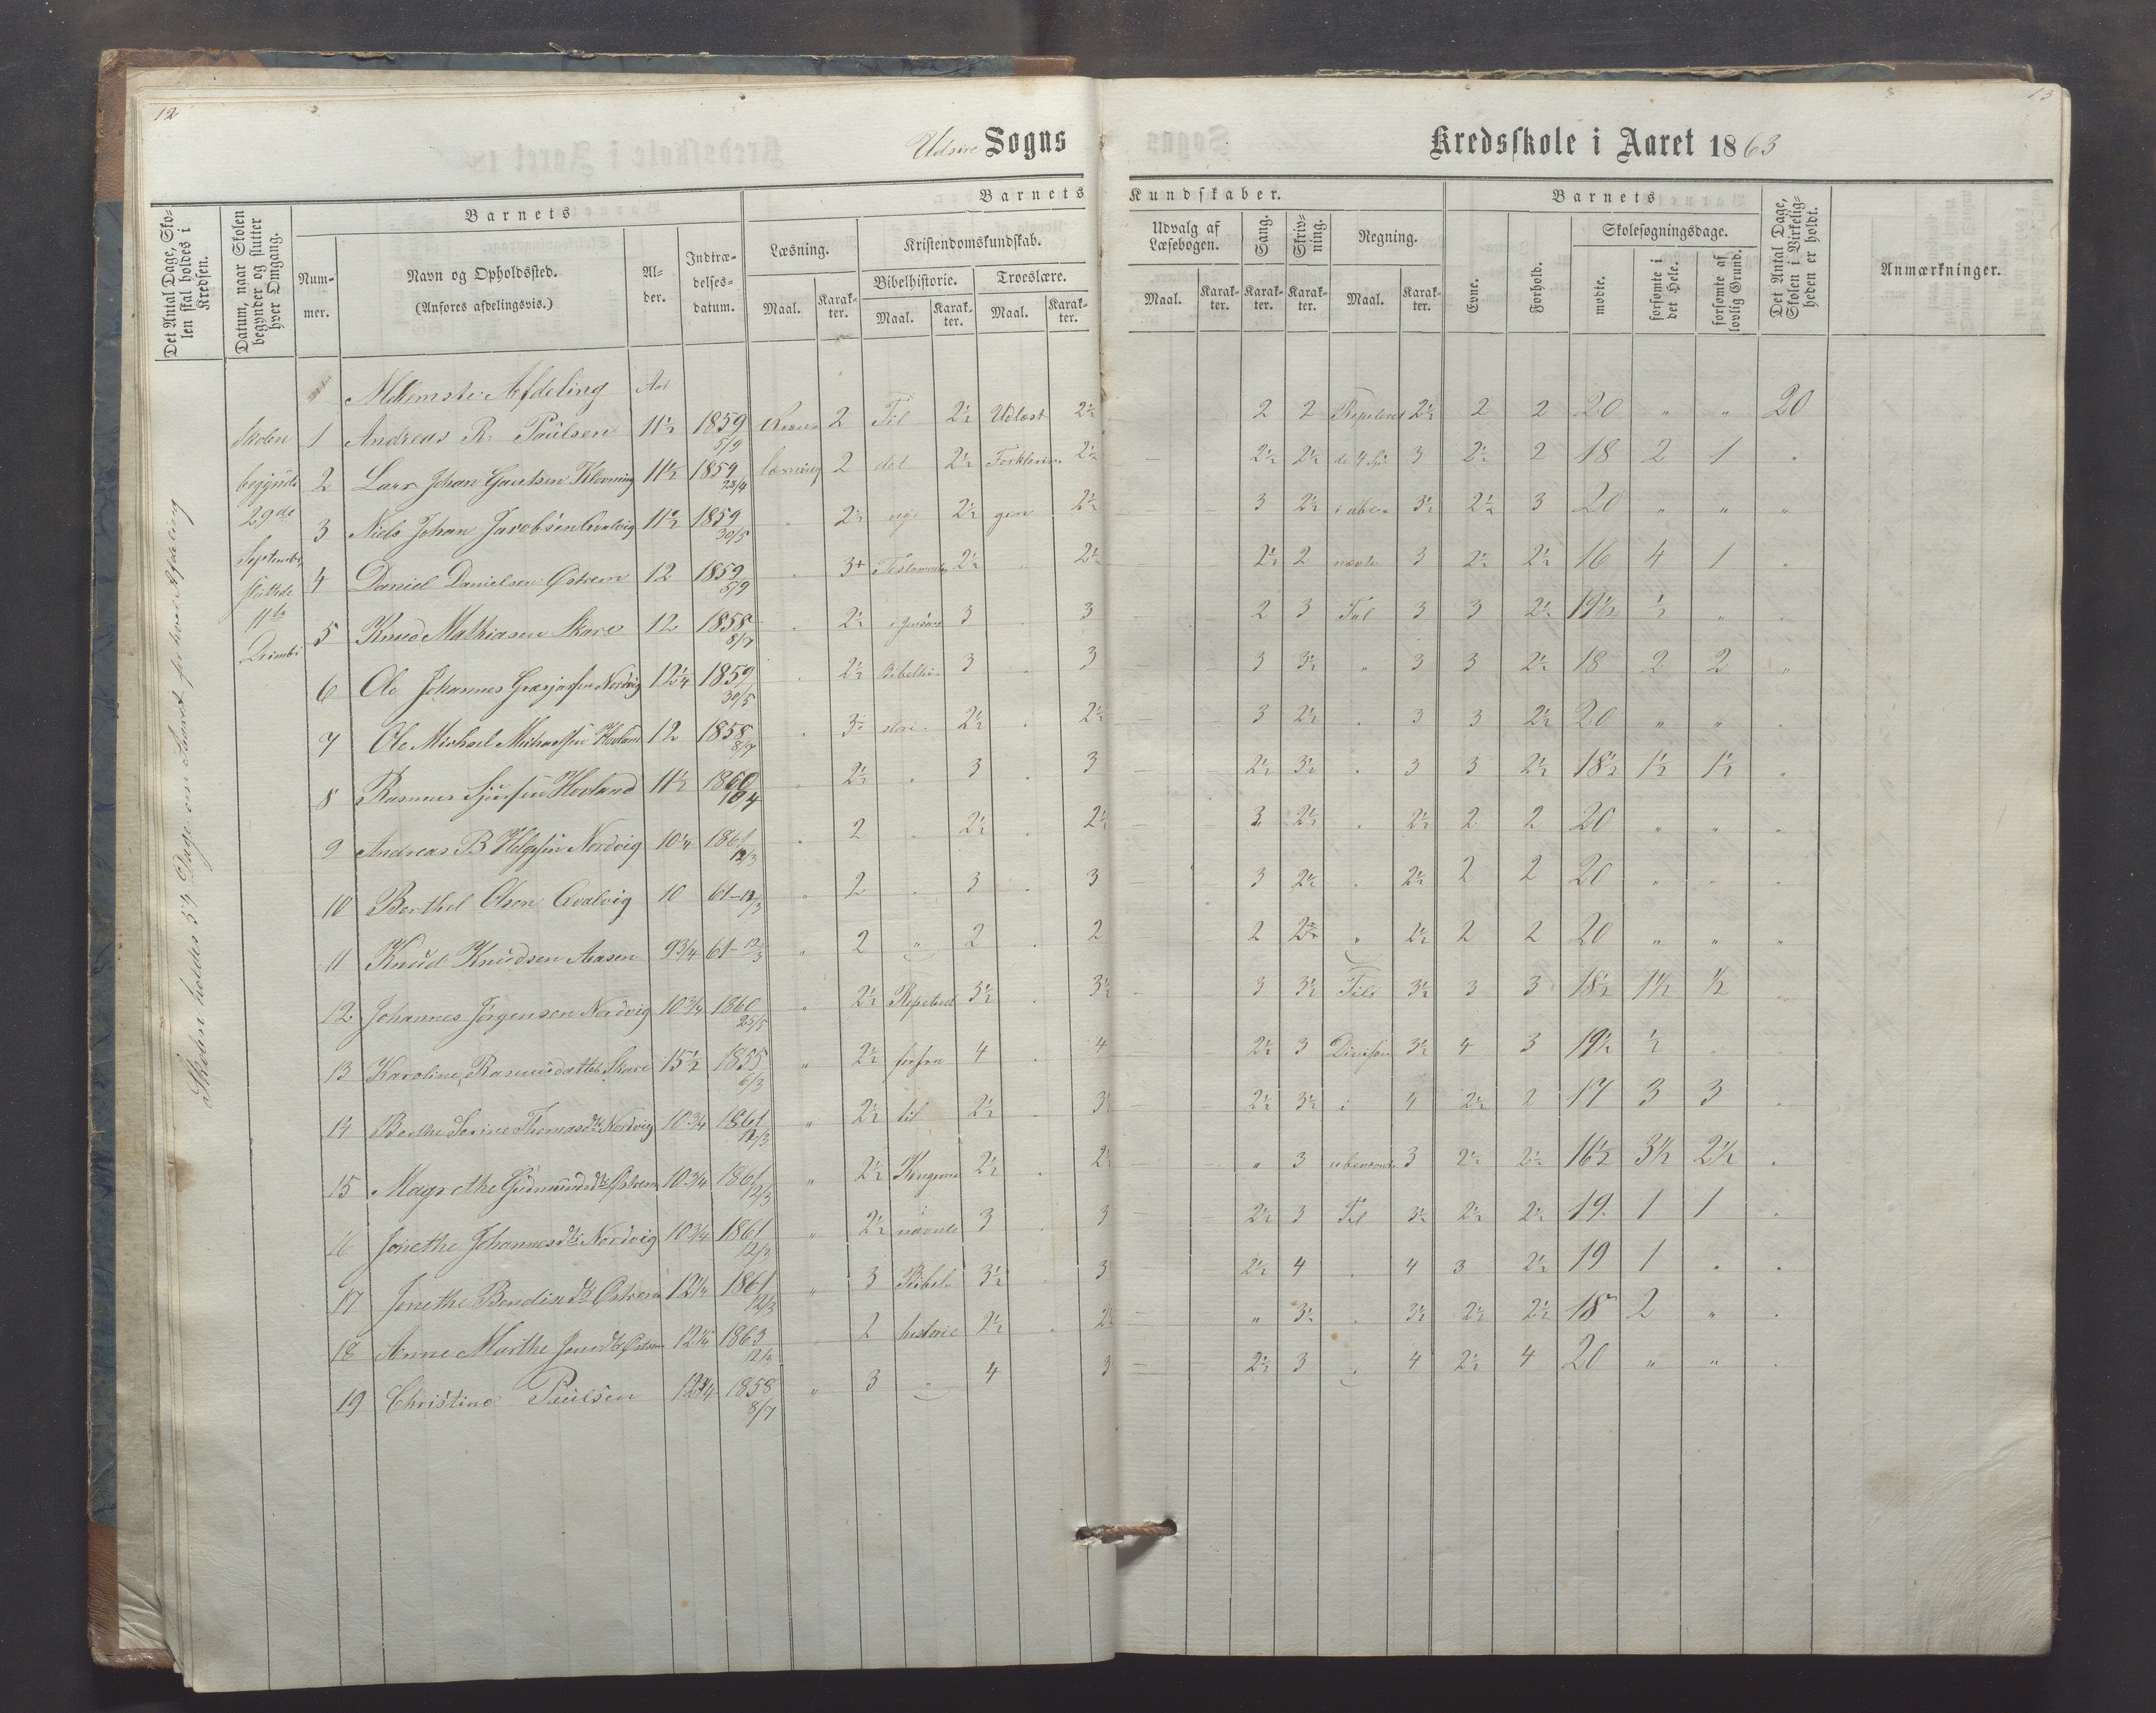 12
13
Udsire Sogns
Kredsskole i Aaret 1863
Det Antal Dage, Skolen skal holdes i Kredsen.
Datum, naar Skolen begynder og slutter hver Omgang.
Barnets
Nummer.
Navn og Opholdssted.
(Anføres afdelingsvis.)
Alder.
Indtrædelsesdatum.
Barnets
Kundskaber.
Læsning.
Maal. Karakter.
Kristendomskundskab.
Bibelhistorie.
Maal. Karakter.
Troeslære.
Maal. Karakter.
Udvalg af Læsebogen.
Maal. Karakter.
Sang.
Karakter.
Skrivning.
Karakter.
Regning.
Maal. Karakter.
Barnets
Evne.
Forhold.
Skolesøgningsdage.
mødte.
forsømte i det Hele.
forsømte af lovlig Grund.
Det Antal Dage, Skolen i Virkeligheden er holdt.
Anmærkninger.
Skolen holdes 54 Dage om Aaret for hver Afdeling
Skolen begyndte 29de September sluttede 11te
Mellemste Afdeling Aar
1 Andreas R. Paulsen 11½ 1859 5/9 2 Til 2½ Udlæst 2½ 2 2 Repeteret 2½ 2 2 20 " " 20
2 Lars Johan Gautsen Klovning 11½ 1859 23/4 læsning 2 det 2½ 2½ 2½ 2½ de 4 3 2½ 2 18 2 1 "
3 Niels Johan Jacobsen Qvalvig 11½ 1859 30/5 " 2½ nye 2½ gen 2½ 3 2½ 3½ 2½ 3 20 " " "
4 Daniel Danielsen Østrem 12 1859 5/9 " 3+ Testamente 2½ " 2½ 2½ 2 nævnte 3 2½ 2½ 16 4 1 "
5 Knud Mathiasen Skare 12 1858 8/7 " 2½ 3 " 3 2 3 Tal 3 3 2½ 19½ ½ " "
6 Ole Johannes Nordvig 12¼ 1859 30/5 " 2½ Bibelhi- 3 " 3 3 3½ " 3 3 2½ 18 2 2 "
7 Ole Michael Michaelsen Hovland 12 1858 8/7 " 3- storie 2½ " 2½ 3 2½ " 3 3 2½ 20 " " "
8 Rasmus Hovland 11½ 1860 " 2½ " 3 " 3 2½ 3½ " 3 3 2½ 18½ 1½ 1½ "
9 Andreas B Helgesen Nordvig 10¼ 1861 12/3 " 2 " 2½ " 2½ 3 2½ " 2½ 2 2 20 " " "
10 Berthel Olsen Qvalvig 10 61-12/3 " 2 " 3 " 3 3 2½ " 2½ 2 2 20 " " "
11 Knud Knudsen Aasen 9¾ 61-12/3 " 2 " 2 " 2 2 " 2½ 2 2 20 " " "
12 Johannes Jørgensen Nordvig 10¾ 1860 25/5 " 2½ Repeteret 3½ " 3½ 3 3½ Til 3½ 3 3 18½ 1½ ½
13 Karoline Rasmusdatter Skare 15½ 1855 6/3 " 2½ forfra 4 " 4 2½ 3 Division 3½ 4 3 19½ ½ "
14 Berthe Serine Thomasdtr Nordvig 10¾ 1861 12/3 " 2½ til 2½ " 3½ 2½ 3½ i 4 2½ 2 17 3 3 "
15 Magrethe Gudmundsdtr Østrem 10¾ 1861 12/3 " 2½ Kongerne 2½ " 2½ " 3 ubenævnte 3 2½ 2½ 16½ 3½ 2½ "
16 Jonethe Johannesdtr Nordvig 10¾ 1861 12/3 " 2½ nævnte 3 " 3 2½ 3 Tal 3½ 2½ 2½ 19 1 1 "
17 Jonethe Bendixdtr Østrem 12¼ 1861 12/3 " 3 Bibel- 3½ " 3 2½ 4 " 4 3 2½ 19 1 " "
18 Anne Marthe Østrem 12¼ 1863 12/3 2 historie 2½ " 2½ " 3½ " 3½ 2½ 2½ 18 2 " "
19 Christine Paulsen 12¼ 1858 8/7 " 3 " 4 3 2½ 3 " 4 2½ 4 20 " " "